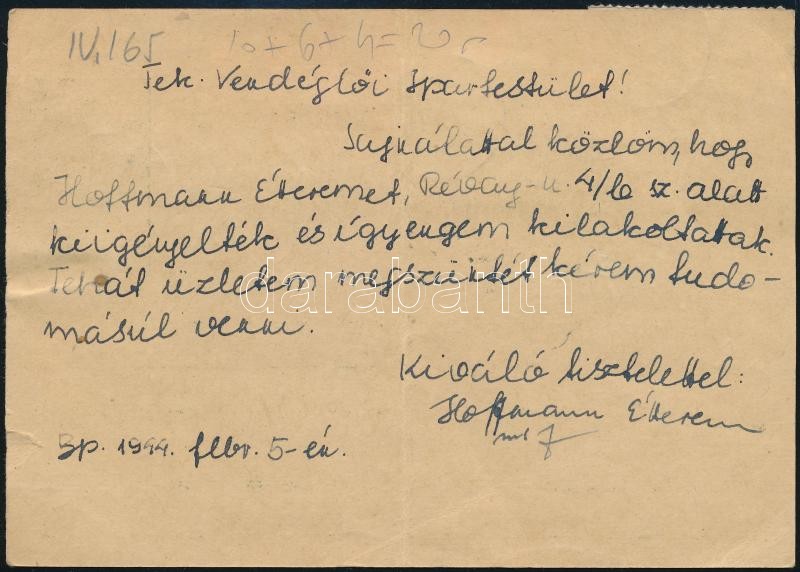 IV./65 10+6+4=20
Tek. Vendéglői Ipartestület!
Sajnálattal közlöm, hogy
Hoffmann Éttermet, Révay-u. 4/b sz. alatt
kiigényelték és így engem kilakoltattak.
Tehát üzletem megszüntét kérem tudo-
másúl venni.
darabanth
Kiváló tisztelettel:
Hoffmann Étterem
Bp. 1944. 5-én.